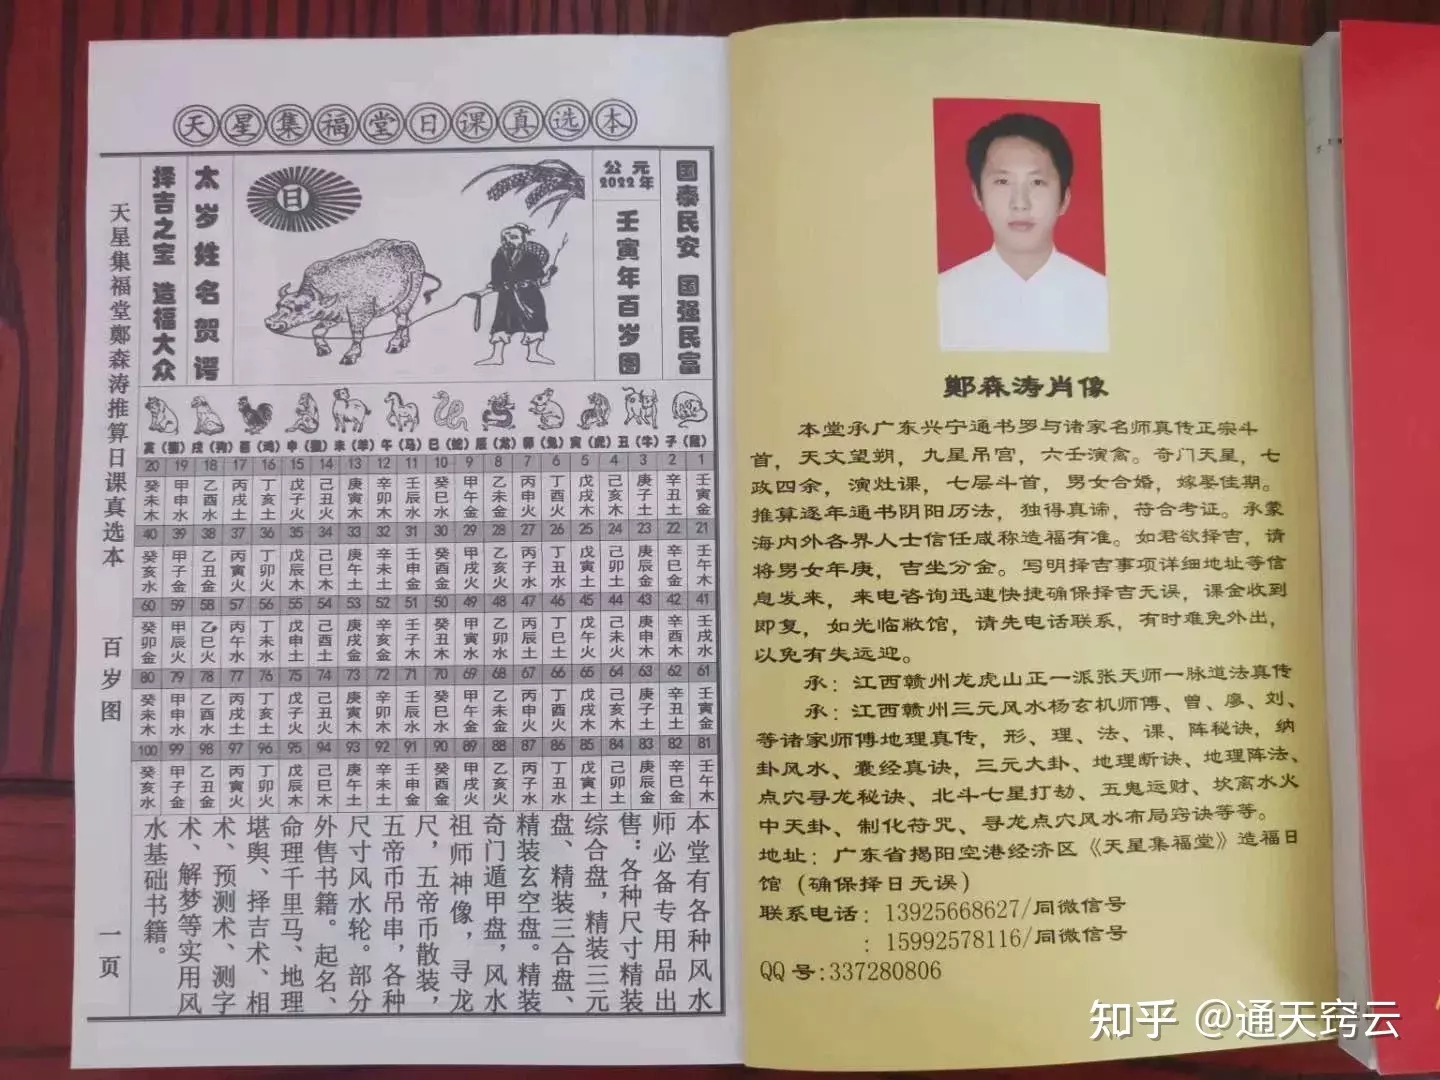 天星集福堂日课真选本
国泰民安 国强民富
公元
2022年
壬寅年百岁图
日
太岁姓名贺谔
择吉之宝 造福大众
天星集福堂鄭森涛推算日课真选本 百岁图 一页
亥(猪) 戌(狗) 酉(鸡) 申(猴) 未(羊) 午(马) 巳(蛇) 辰(龙) 卯(兔) 寅(虎) 丑(牛) 子(鼠)
20 19 18 17 16 15 14 13 12 11 10 9 8 7 6 5 4 3 2 1
癸未木 甲申水 乙酉水 丙戌土 丁亥土 戊子火 己丑火 庚寅木 辛卯木 壬辰水 癸巳水 甲午金 乙未金 丙申火 丁酉火 戊戌木 己亥木 庚子土 辛丑土 壬寅金
40 39 38 37 36 35 34 33 32 31 30 29 28 27 26 25 24 23 22 21
癸亥水 甲子金 乙丑金 丙寅火 丁卯火 戊辰木 己巳木 庚午土 辛未土 壬申金 癸酉金 甲戌火 乙亥火 丙子水 丁丑水 戊寅土 己卯土 庚辰金 辛巳金 壬午木
60 59 58 57 56 55 54 53 52 51 50 49 48 47 46 45 44 43 42 41
癸卯金 甲辰火 乙巳火 丙午水 丁未水 戊申土 己酉土 庚戌金 辛亥金 壬子木 癸丑木 甲寅水 乙卯水 丙辰土 丁巳土 戊午火 己未火 庚申木 辛酉木 壬戌水
80 79 78 77 76 75 74 73 72 71 70 69 68 67 66 65 64 63 62 61
癸未木 甲申水 乙酉水 丙戌土 丁亥土 戊子火 己丑火 庚寅木 辛卯木 壬辰水 癸巳水 甲午金 乙未金 丙申火 丁酉火 戊戌木 己亥木 庚子土 辛丑土 壬寅金
100 99 98 97 96 95 94 93 92 91 90 89 88 87 86 85 84 83 82 81
癸亥水 甲子金 乙丑金 丙寅火 丁卯火 戊辰木 己巳木 庚午土 辛未土 壬申金 癸酉金 甲戌火 乙亥火 丙子水 丁丑水 戊寅土 己卯土 庚辰金 辛巳金 壬午木
本堂有各种风水
师必备专用品出
售：各种尺寸精装
综合盘，精装三元
盘、精装三合盘、
精装玄空盘。精装
奇门遁甲盘，风水
祖师神像，寻龙
尺，五帝币散装，
五帝币吊串，各种
尺寸风水轮。部分
外售书籍。起名、
命理千里马、地理
堪舆、择吉术、相
术、预测术、测字
术、解梦等实用风
水基础书籍。
鄭森涛肖像
本堂承广东兴宁通书罗与诸家名师真传正宗斗
首，天文望朔，九星吊宫，六壬演禽。奇门天星，七
政四余，演灶课，七层斗首，男女合婚，嫁娶佳期。
推算逐年通书阴阳历法，独得真谛，符合考证。承蒙
海内外各界人士信任咸称造福有准。如君欲择吉，请
将男女年庚，吉坐分金。写明择吉事项详细地址等信
息发来，来电咨询迅速快捷确保择吉无误，课金收到
即复，如光临敝馆，请先电话联系，有时难免外出，
以免有失远迎。
承：江西赣州龙虎山正一派张天师一脉道法真传
承：江西赣州三元风水杨玄机师傅、曾、廖、刘、
等诸家师傅地理真传，形、理、法、课、阵秘诀，纳
卦风水、囊经真诀，三元大卦、地理断诀、地理阵法、
点穴寻龙秘诀、北斗七星打劫、五鬼运财、坎离水火
中天卦、制化符咒、寻龙点穴风水布局窍诀等等。
地址：广东省揭阳空港经济区《天星集福堂》造福日
馆（确保择日无误）
联系电话：13925668627/同微信号
：15992578116/同微信号
QQ号:337280806
知乎 @通天窍云